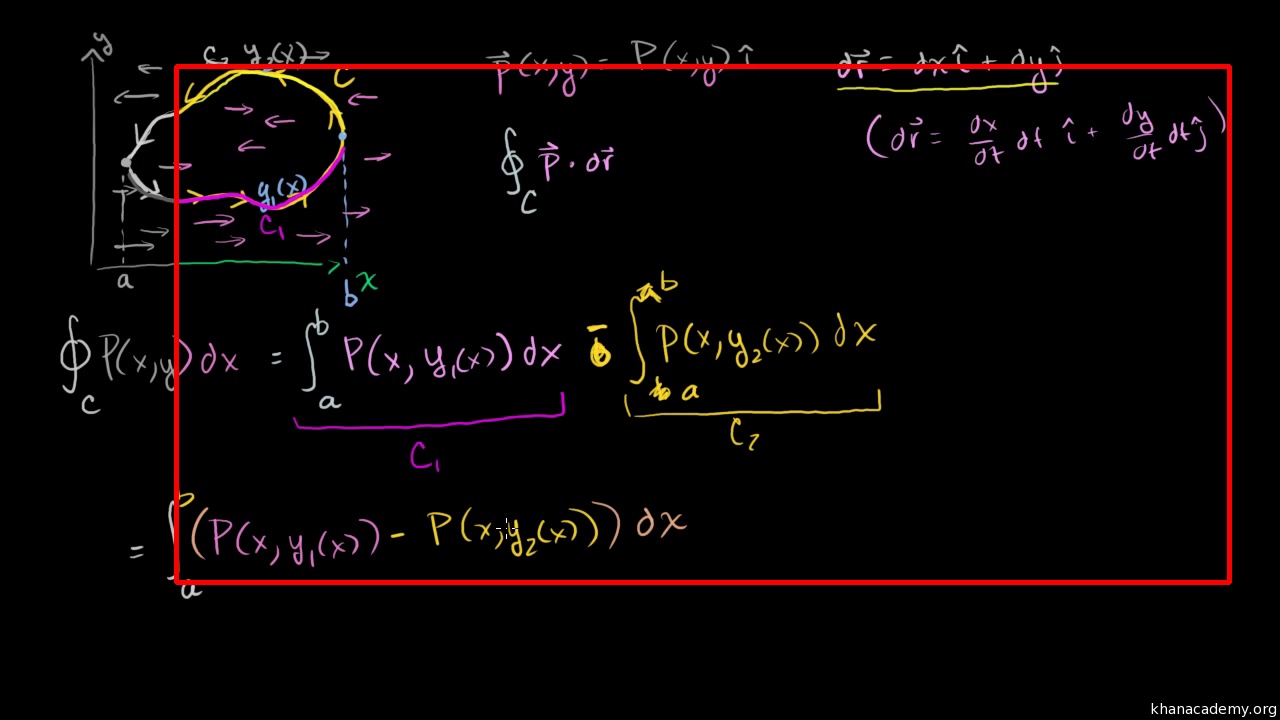 y
C₂ y₂(x)
C
y₁(x)
C₁
a
b
x
P⃗(x,y) = P(x,y) î
dr⃗ = dx î + dy ĵ
∮_C P⃗ · dr⃗
(dr⃗ = dx/dt dt î + dy/dt dt ĵ)
∮_C P(x,y) dx = ∫_a^b P(x, y₁(x)) dx − ∫_a^b P(x, y₂(x)) dx
C₁
C₂
= ∫_a^b (P(x, y₁(x)) − P(x, y₂(x))) dx
khanacademy.org